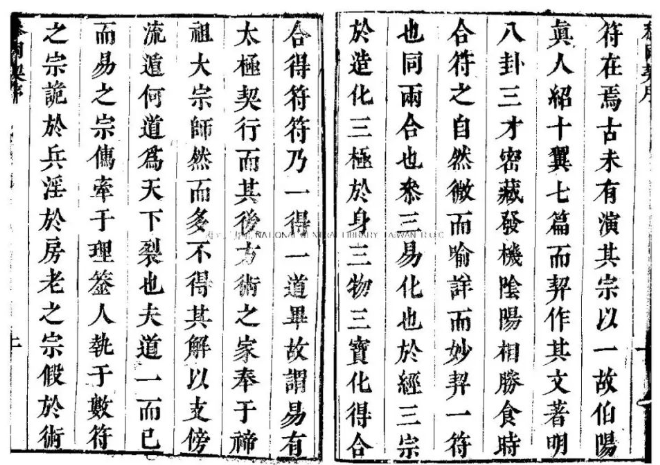 符在焉古未有演其宗以一故伯陽
眞人紹十翼七篇而契作其文著明
八卦三才密藏發機陰陽相勝食時
合符之自然微而喻詳而妙契一符
也同兩合也叅三易化也於經三宗
於造化三極於身三物三寶化得合
合得符符乃一得一道畢故謂易有
太極契行而其後方術之家奉于禘
祖大宗師然而多不得其解以支傍
流遁何道爲天下裂也夫道一而已
而易之宗儁牽于理筮人執于數符
之宗詭於兵淫於房老之宗假於術